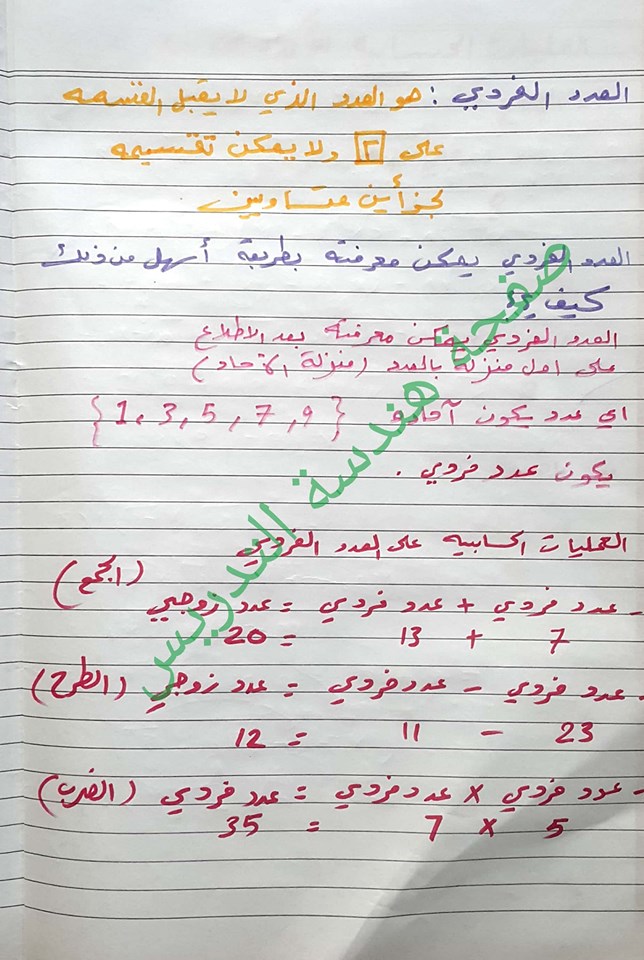 العدد الفردي : هو العدد الذي لا يقبل القسمه
على ٢ ولا يمكن تقسيمه
لجزأين متساويين
العدد الفردي يمكن معرفته بطريقة أسهل من ذلك
كيف ؟
العدد الفردي يمكن معرفته بعد الاطلاع
على اول منزلة بالعدد (منزلة الآحاد)
اي عدد يكون آحاده {1, 3, 5, 7, 9}
يكون عدد فردي .
العمليات الحسابيه على العدد الفردي
- عدد فردي + عدد فردي = عدد زوجي (الجمع)
7 + 13 = 20
- عدد فردي - عدد فردي = عدد زوجي (الطرح)
23 - 11 = 12
- عدد فردي × عدد فردي = عدد فردي (الضرب)
5 × 7 = 35
صفحة هندسة التدريس